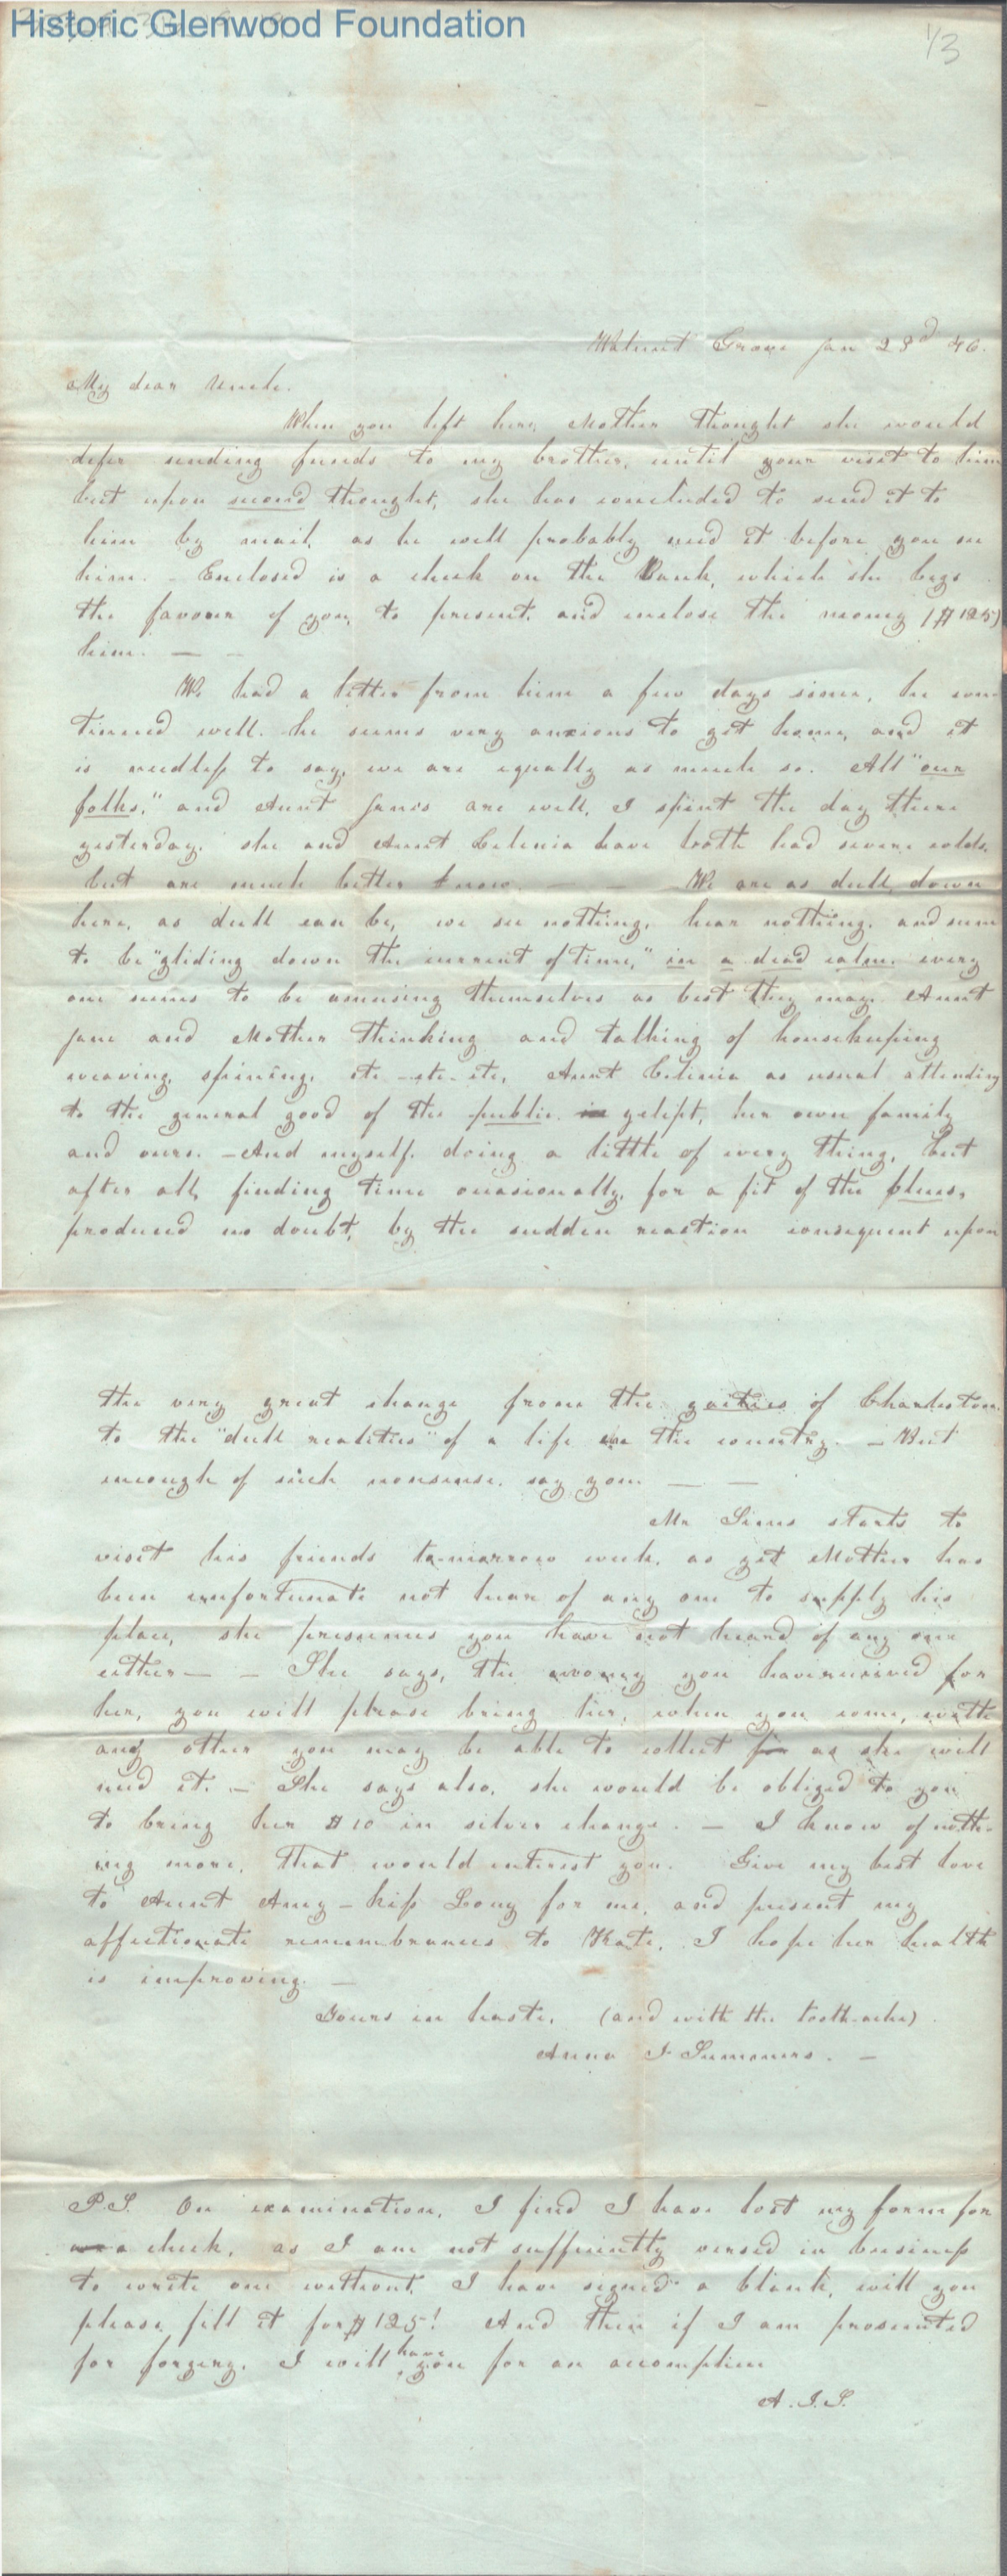 Historic Glenwood Foundation
1/3
Walnut Grove Jan 23d 46.
My dear Uncle.
When you left here, Mother thought she would
defer sending funds to my brother, until your visit to him
but upon second thought, she has concluded to send it to
him by mail, as he will probably need it before you see
him. - Enclosed is a check on the Bank, which she begs
the favour of you, to present, and enclose the money ($125)
him. — -
We had a letter from him a few days since, he con-
tinued well. he seems very anxious to get home, and it
is needless to say, we are equally as much so. All "our
folks," and Aunt Jane's are well, I spent the day there
yesterday. she and Aunt Celenia have both had severe colds,
but are much better know. — — We are as dull, down
here, as dull can be, we see nothing, hear nothing, and seem
to be "gliding down the current of time," in a dead calm. every
one seems to be amusing themselves as best they may. Aunt
Jane and Mother thinking and talking of housekeeping
weaving, spining, etc - etc - etc, Aunt Celenia as usual attending
to the general good of the public. in yclept, her own family
and ours. - And myself, doing a little of every thing, but
after all, finding time occasionally, for a fit of the blues,
produced no doubt, by the sudden reaction consequent upon
the very great change from the gaities of Charleston
to the "dull realities" of a life in the country. - But
enough of such nonsense, say you. — —
Mr Sims starts to
visit his friends to-morrow week, as yet Mother has
been unfortunate not hear of any one to supply his
place, she presumes you have not heard of any one
either — - She says, the money you have received for
her, you will please bring her, when you come, with
any other you may be able to collect for as she will
need it. - She says also, she would be obliged to you
to bring her $10 in silver change. - I know of noth-
ing more, that would interest you. Give my best love
to Aunt Amy - kiss Lony for me, and present my
affectionate remembrances to Kate, I hope her health
is improving. —
Yours in haste, (and with the tooth-ache)
Anna I Summers. —
P.S. On examination, I find I have lost my form for
a check, as I am not sufficiently versed in business
to write one without, I have signed a blank, will you
please fill it for $125! And then if I am prosecuted
for forgery, I will have you for an accomplice
A. I. S.